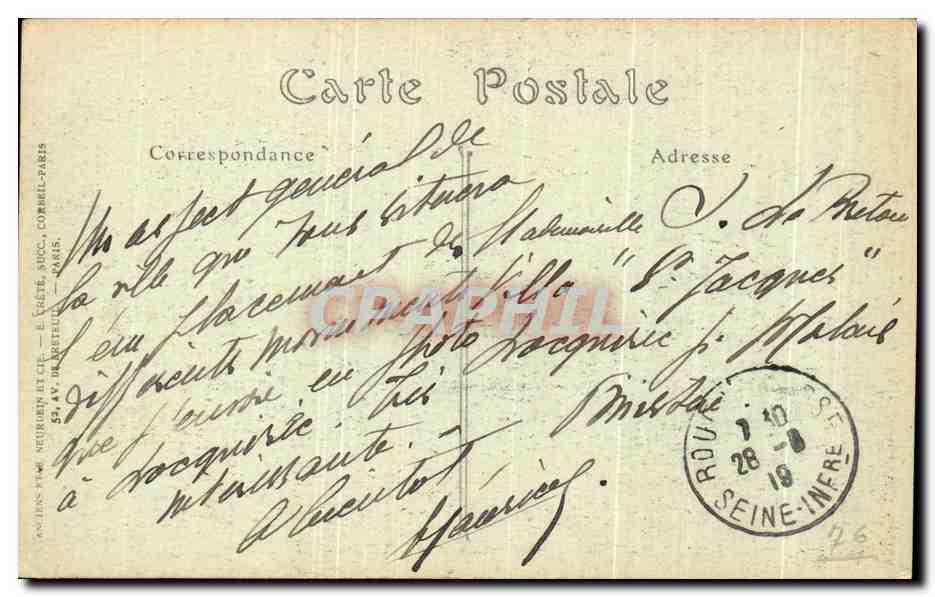 Carte Postale
Correspondance
Adresse
Un aspect général de
la ville qui vous situera
l'emplacement des
différents monuments
que j'envoie en photo
à Locquirec. Très
intéressante.
A bientôt
Maurice
Mademoiselle J. Le Breton
Villa "St Jacques"
Locquirec
Finistère
ROU SSE
7 30
28 - 8
19
SEINE-INFRE
76
ANCIENS ETAB. NEURDEIN ET CIE. — E. CRÉTÉ, SUCC., CORBEIL-PARIS
52, AV. DE BRETEUIL — PARIS.
CPAPHIL